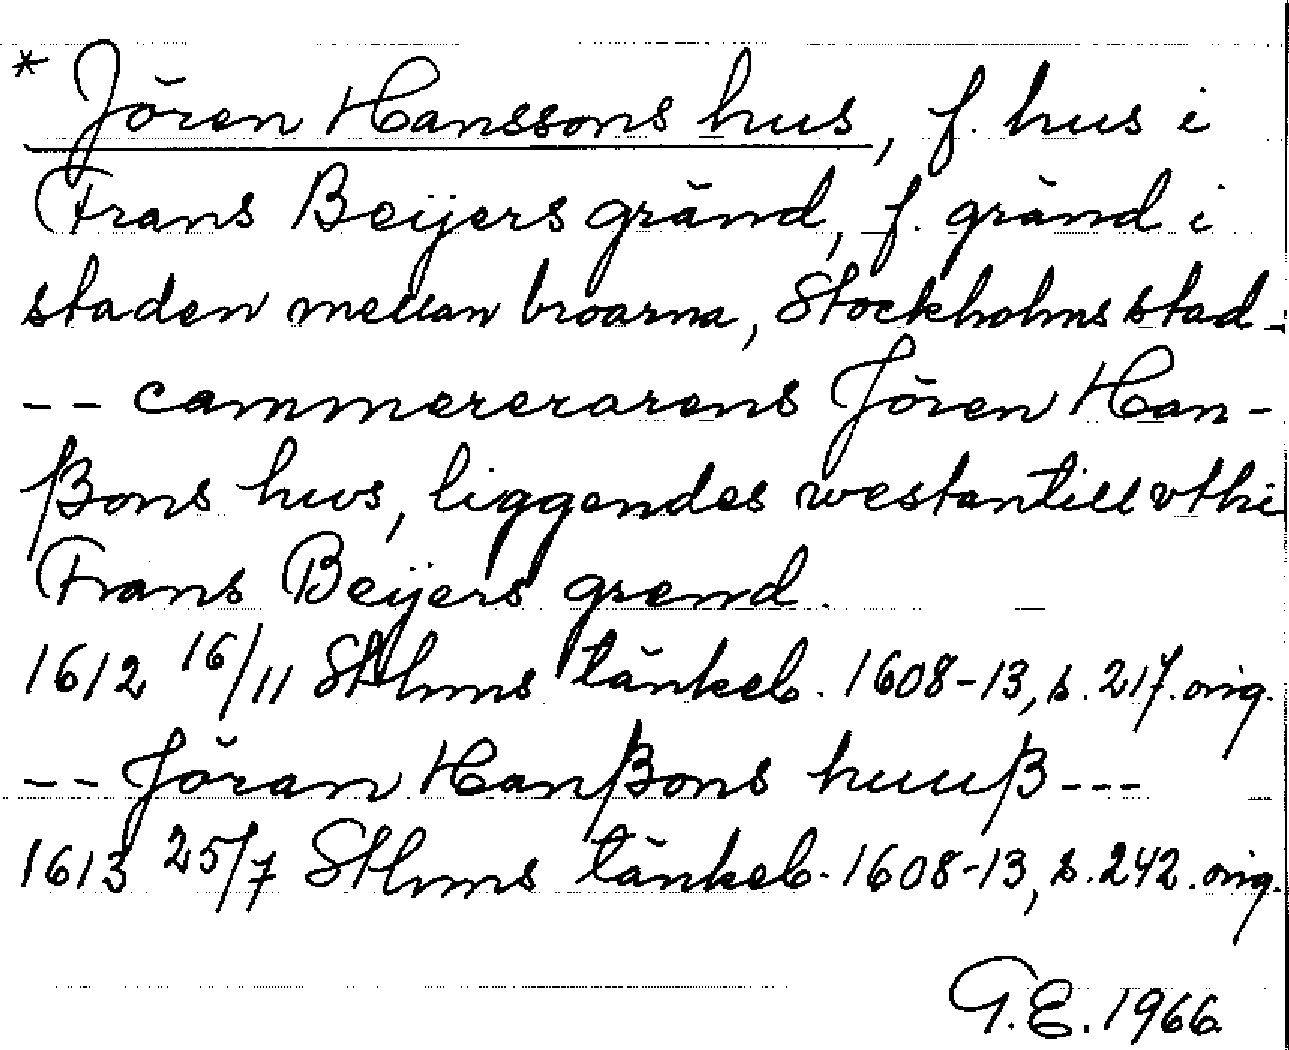 * Jören Hanssons hus, f. hus i
Frans Beijers gränd, f. gränd i
staden mellan broarna, Stockholms stad.
-- cammererarens Jören Han-
ßons hws, liggendes westantill vthi
Frans Beijers grend.
1612 16/11 Sthlms tänkeb. 1608-13, s. 217. orig.
-- Jöran Hanßons huuß ---
1613 25/7 Sthlms tänkeb. 1608-13, s. 242. orig.
G.E. 1966